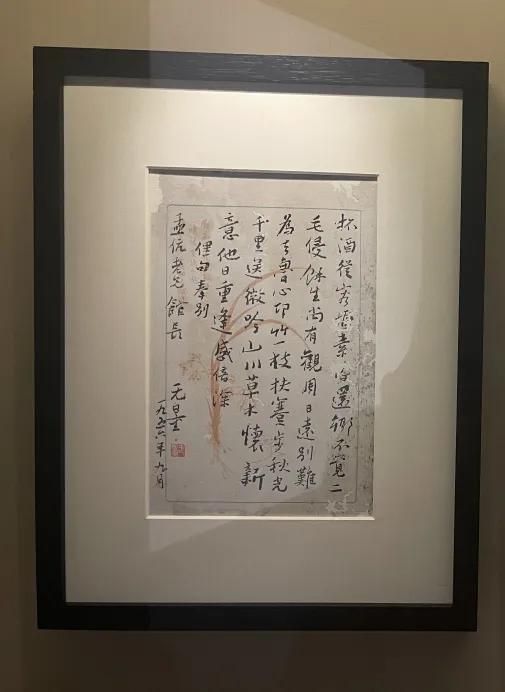 杯酒從容素還鄉不覺二
毛侵餘生尚有觀周日遠別難
為去魯心邛竹一枝扶蹇步秋光
千里送微吟山川草木懷新
意他日重逢感倍深
俚句奉別
孟伉老兄館長
无量
一九五六年九月